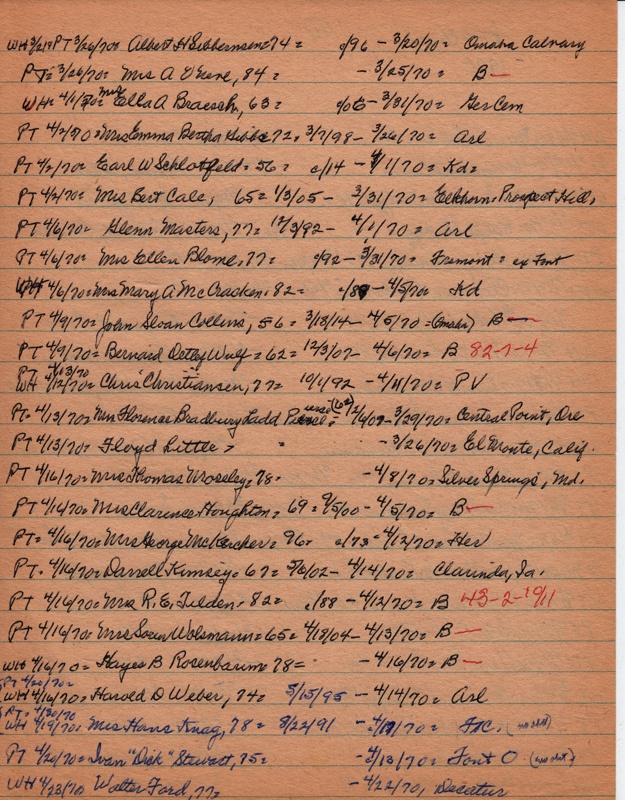 WH 3/21= PT 3/26/70= Albert H Sibbernsen= 74 = c/96 - 3/20/70= Omaha Calvary
PT= 3/26/70= Mrs A O'Neve, 84 = - 3/25/70= B—
WH= 4/1/70= Mrs Ella A Braesch, 63 = c/06 - 3/31/70= Ger Cem
PT 4/2/70= Mrs Emma Bertha Gibbs 72, 3/7/98 - 3/26/70= Arl
PT 4/2/70= Earl W Schlotfeld= 56 = c/14 - 4/1/70= Kd=
PT 4/2/70= Mrs Bert Cale, 65= 1/3/05 - 3/31/70= Elkhorn= Prospect Hill,
PT 4/6/70= Glenn Masters, 77= 12/3/92 - 4/1/70= Arl
PT 4/6/70= Mrs Ellen Blome, 77= c/92 - 3/31/70= Fremont = ex Font
WH 4/6/70= Mrs Mary A McCracken= 82= c/88 - 4/5/70= Kd
PT 4/9/70= John Sloan Collins, 56 = 3/18/14 - 4/5/70= (Omaha) B—
PT 4/9/70= Bernard Detlef Wulf= 62= 12/3/07 - 4/6/70= B 82-7-4
PT 4/13/70
WH 4/12/70= Chris Christiansen, 77= 10/1/92 - 4/11/70= PV
PT= 4/13/70= Mrs Florence Bradbury Ladd (62) - 3/29/70= Central Point, Ore
PT 4/13/70= Floyd Little= = - 3/26/70= El Monte, Calif.
PT 4/16/70= Mrs Thomas Moseley= 78= - 4/8/70= Silver Springs, Md.
PT 4/16/70= Mrs Clarence Houghton= 69= 9/5/00 - 4/5/70= B—
PT= 4/16/70= Mrs George McKercher= 96= c/73 - 4/12/70= Her
PT= 4/16/70= Darrell Kimsey= 67= 5/6/02 - 4/14/70= Clarinda, Ia.
PT 4/16/70= Mrs R. E. Tilden= 82= c/88 - 4/12/70= B 43-2-1911
PT 4/16/70= Mrs Soren Wolsmann= 65= 4/18/04 - 4/13/70= B—
WH 4/16/70= Hayes B Rosenbaum= 78= - 4/16/70= B—
PT 4/20/70=
WH 4/16/70= Harold D Weber, 74= 5/15/95 - 4/14/70= Arl
PT= 4/20/70
WH 4/19/70= Mrs Hans Knag, 78= 8/22/91 - 4/17/70= FtC. (no obit)
PT 4/20/70= Ivan "Dick" Stewart, 75= - 4/13/70= Font O (no obit.)
WH 4/23/70 Walter Ford, 77= - 4/22/70, Decatur